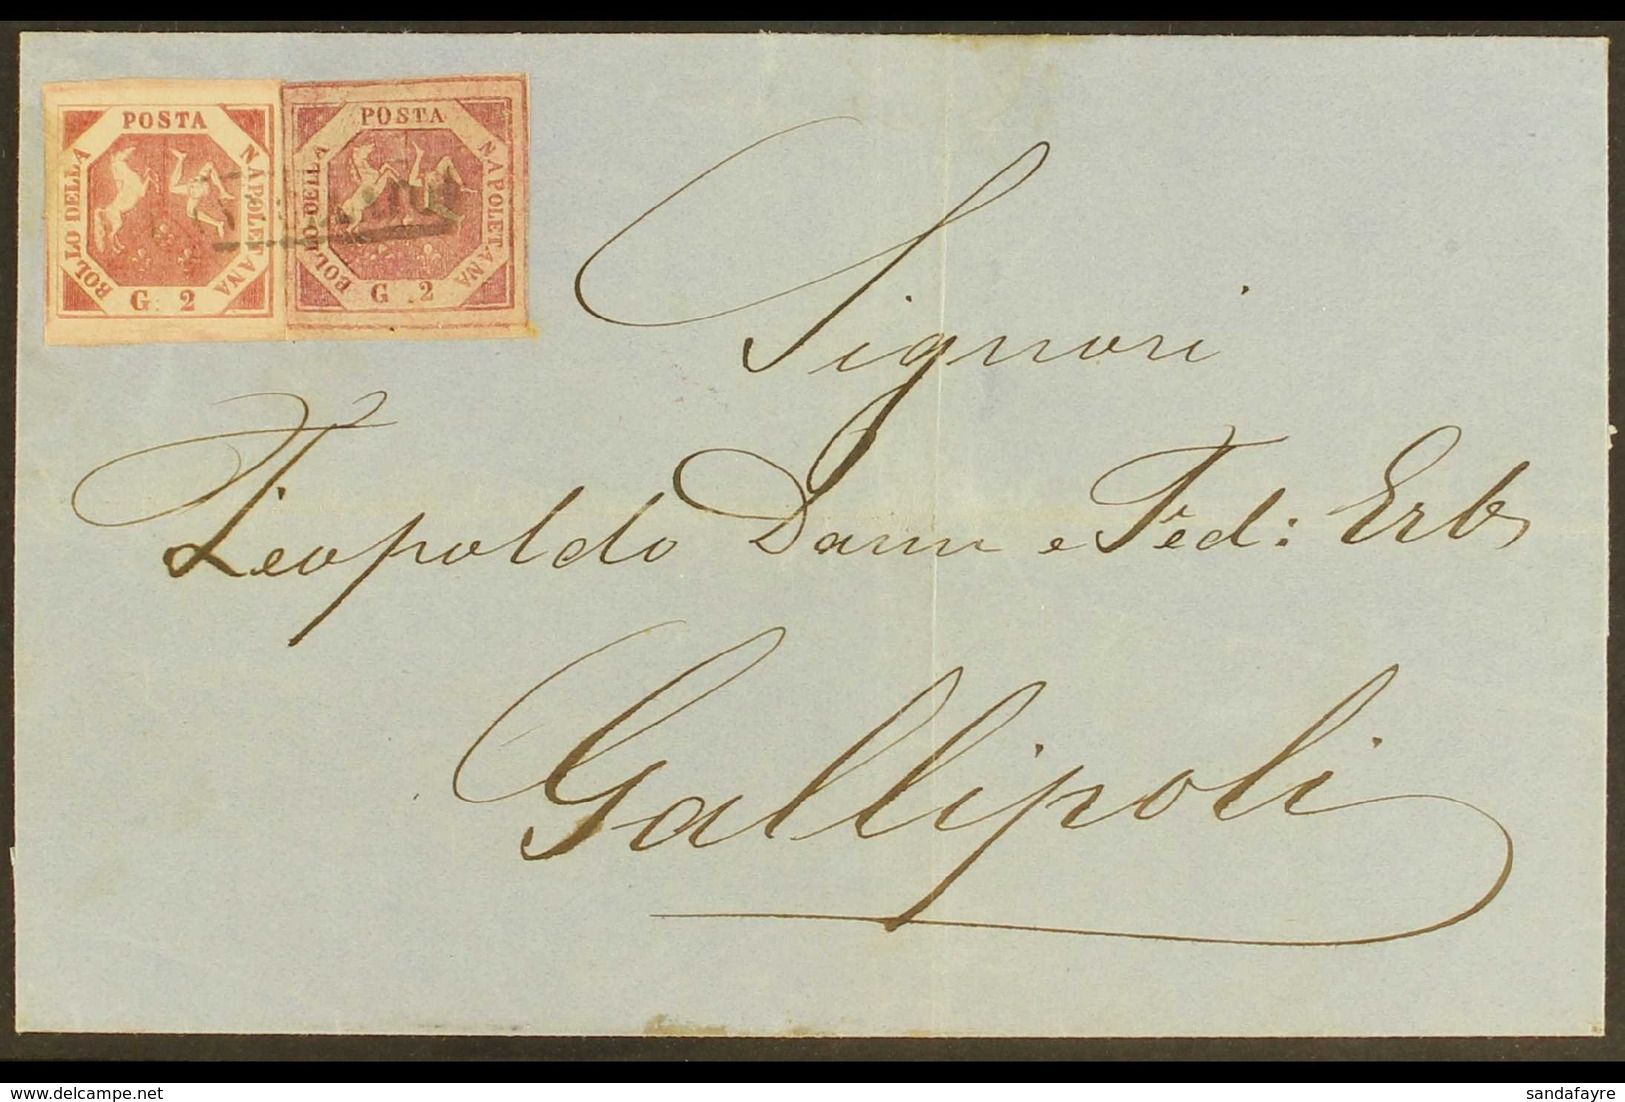 POSTA
NAPOLETANA
BOLLO DELLA
G. 2
POSTA
NAPOLETANA
BOLLO DELLA
G. 2
Signori
Leopoldo Dann e Fed: Erb
Gallipoli
sandafayre
delcampe.net